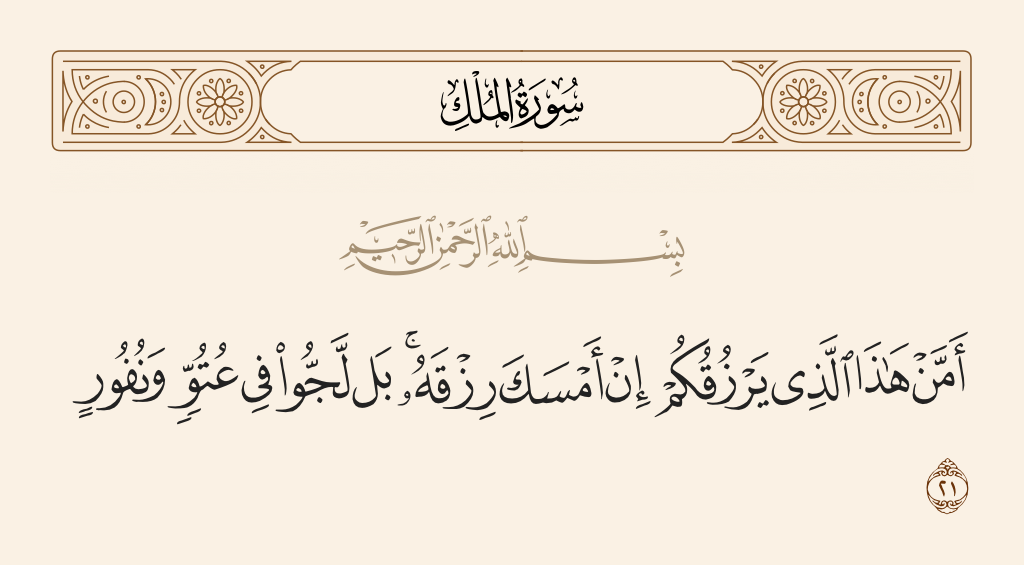 سُورَةُ الْمُلْكِ
بِسْمِ ٱللَّهِ ٱلرَّحْمَٰنِ ٱلرَّحِيمِ
أَمَّنْ هَٰذَا ٱلَّذِى يَرْزُقُكُمْ إِنْ أَمْسَكَ رِزْقَهُۥ ۚ بَل لَّجُّوا۟ فِى عُتُوٍّ وَنُفُورٍ
٢١